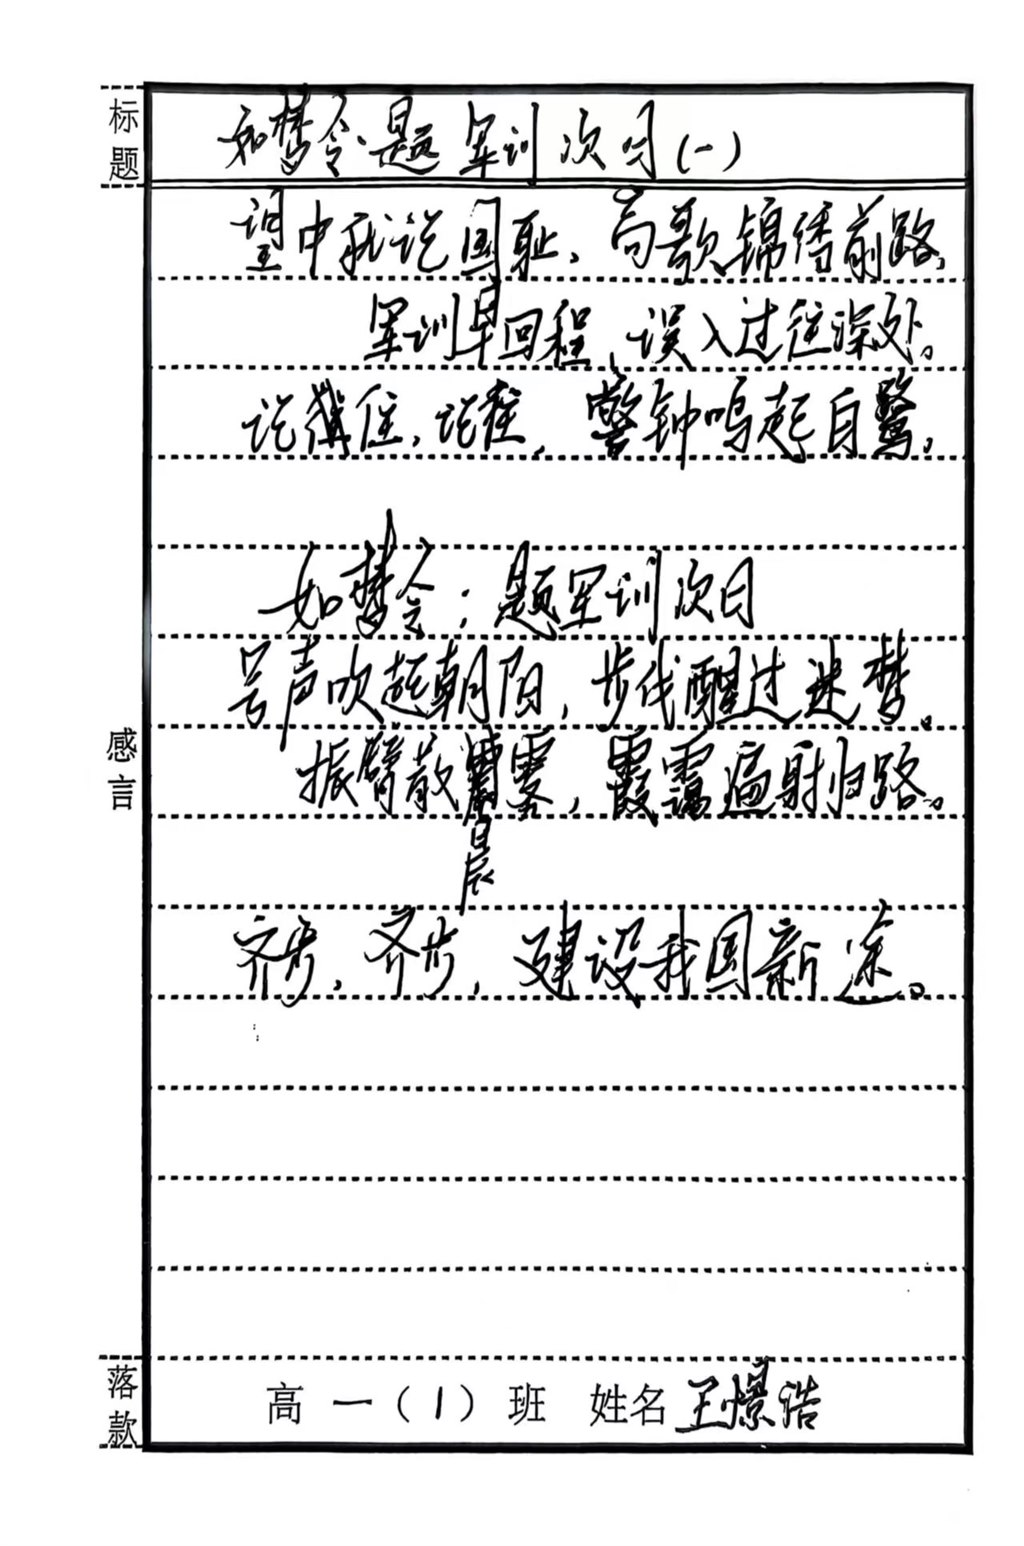 标题
如梦令·题军训次日(一)
望中承记国耻，高歌锦绣前路，
军训早回程，误入过往深处。
记住，记住，警钟鸣起白鹭，
如梦令：题军训次日
感言
号声吹起朝阳，步伐醒过迷梦。
振臂散雾，霞霭遍射归路。
晨
齐步，齐步，建设我国新途。
落款
高一（1）班 姓名 王憬浩